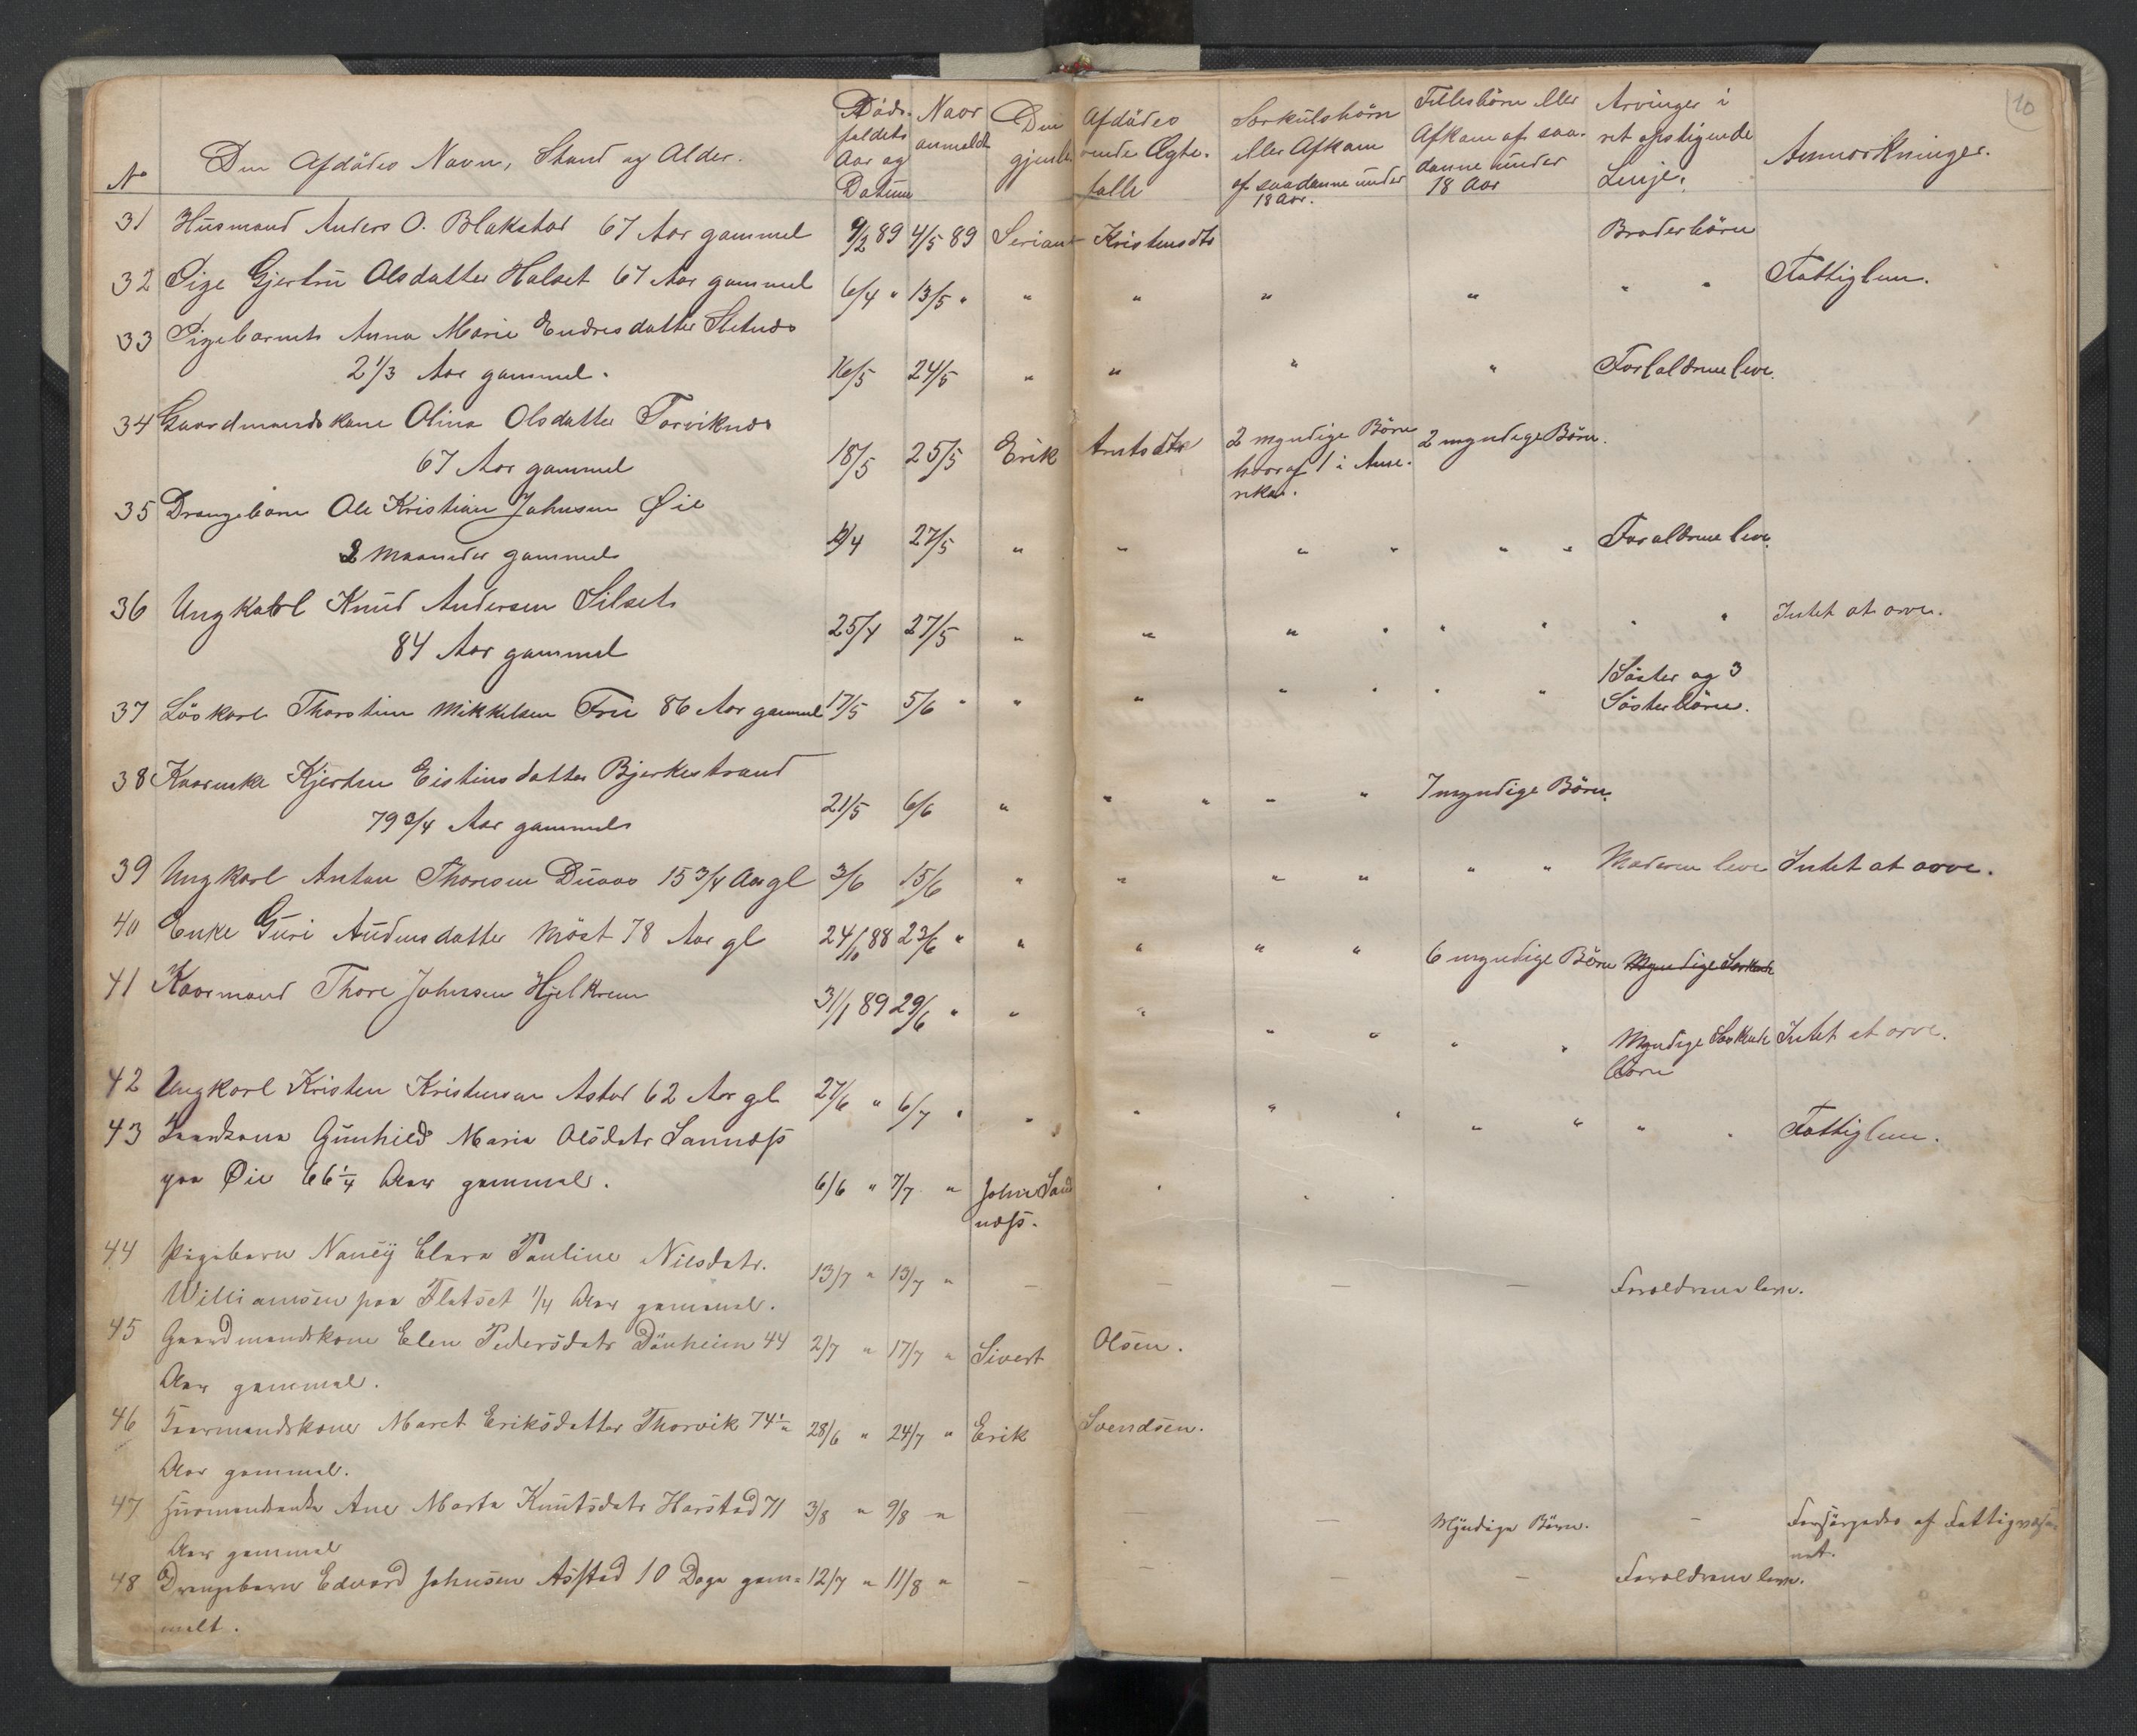 10
No Den Afdødes Navn, Stand og Alder. Döds-faldets Aar og Datum Naar anmeldt Den Afdödes gjenlevende Ægtefælle Særkulsbörn eller Afkom af saadanne under 18 Aar. Fællesbörn eller Afkom af saadanne under 18 Aar Arvinger i ret opstigende Linje. Anmærkninger.
31 Husmand Anders O. Blakstad 67 Aar gammel 9/2 89 4/5 89 Seriane Kristensdtr Broderbörn
32 Pige Gjertru Olsdatter Halset 67 Aar gammel 6/4 " 13/5 " " " " " " " Fattiglem.
33 Pigebarnet Anna Marie Endresdatter
2 1/3 Aar gammel. 16/5 24/5 " " " " Forældrene leve.
34 Gaardmandskone Olina Olsdatter Torviknes
67 Aar gammel 18/5 25/5 Erik 2 myndige Börn 2 myndige Börn.
hvoraf 1 i Ame-
rika.
35 Drengebarn Ole Kristian Johnsen Øie
2 Maaneder gammel 27/5 " " " " " " Forældrene leve.
36 Ungkarl Knud Andersen Silset
84 Aar gammel 25/4 27/5 " " " " " " " " Intet at arve.
37 Löskarl Thorstein Mikkelsen Frei 86 Aar gammel 17/5 5/6 " " " " " " " 1 Söster og 3
Sösterbörn.
38 Kaarenke Kjersten Eistensdatter Bjerkestrand
79 3/4 Aar gammel 21/5 6/6 " " " " " 7 myndige Börn.
39 Ungkarl Anton Thoresen 15 3/4 Aar gl 3/6 15/6 " " " " " " Moderen lever Intet at arve.
40 Enke Guri Audensdatter Möst 78 Aar gl 24/10 88 23/6 " " " " " 6 myndige Börn Myndige
41 Kaarmand Thore Johnsen Hjelkrem 31/1 89 29/6 " " " " " " " Myndige Intet at arve.
börn
42 Ungkarl Kristen Kristensen Astad 62 Aar gl. 27/6 " 6/7 " " " " " " " " " Fattiglem.
43 Gunhild Maria Olsdatr Sannæss
paa Øie 66 1/4 Aar gammel. 6/6 " 7/7 " John Sand
næss. " " "
44 Pigebarn Nancy Clara Pauline Nilsdatr.
Williamsen paa Flatset 1/4 Aar gammel. 13/7 " 13/7 " — — — — Forældrene leve.
45 Gaardmandskone Elen Pedersdatr 44 2/7 " 17/7 " Sivert Olsen.
Aar gammel.
46 Kaarmandskone Maret Eriksdatter Thorvik 74 1/2 28/6 " 24/7 " Erik Svendsen.
Aar gammel.
47 Husmandsenke Ane Marta Knutsdatr Harstad 71 3/8 " 9/8 " — — Myndige Börn. — Forsörgedes af Fattigvæse-
Aar gammel net.
48 Drengebarn Edvard Johnsen Astad 10 Dage gam- 12/7 " 11/8 " — — — — Forældrene leve.
melt.